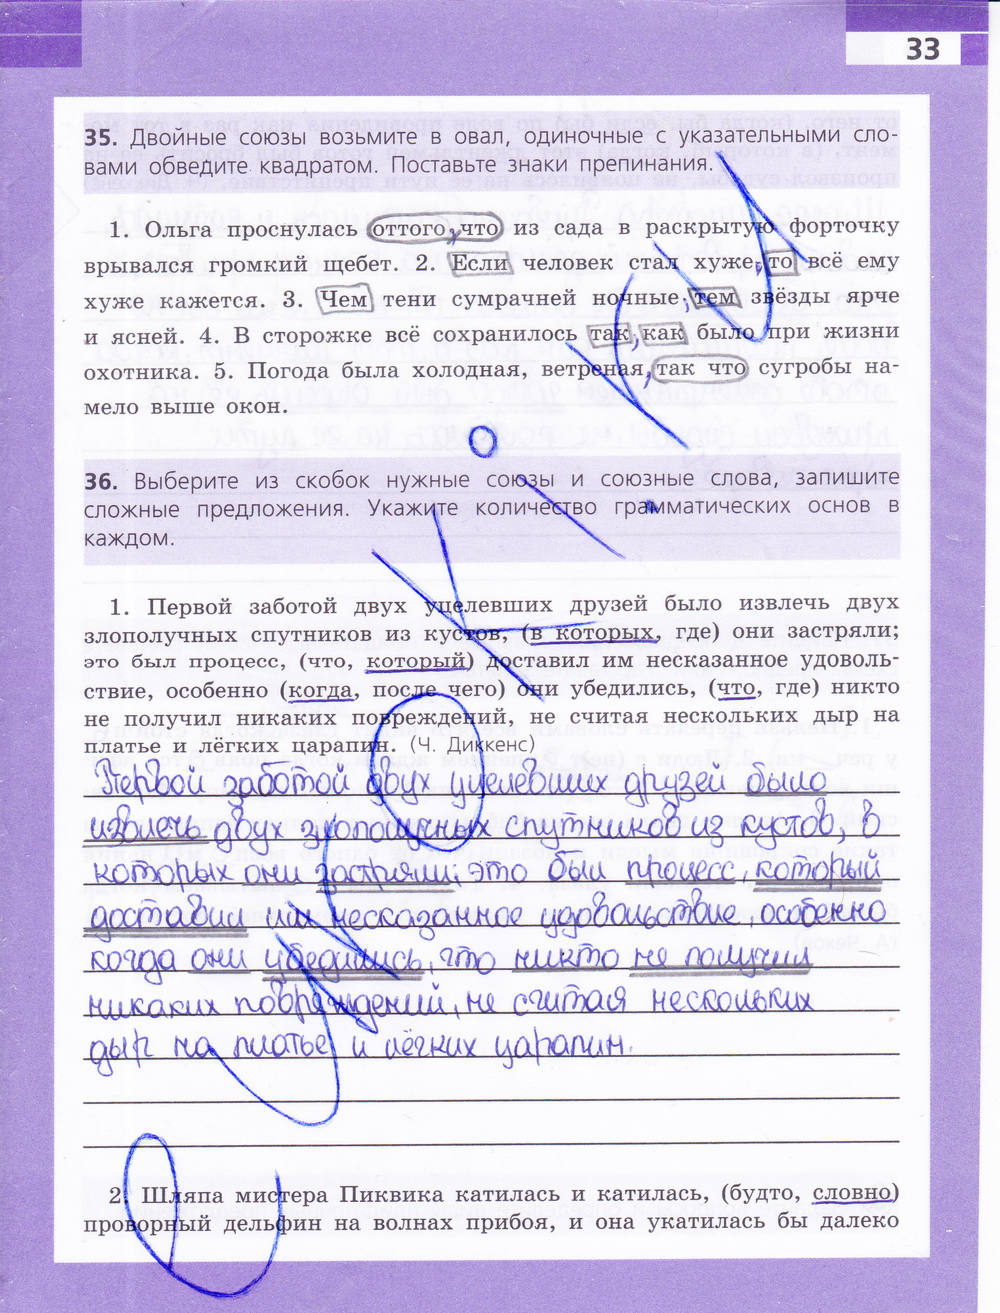 33
35. Двойные союзы возьмите в овал, одиночные с указательными сло-
вами обведите квадратом. Поставьте знаки препинания.
1. Ольга проснулась оттого, что из сада в раскрытую форточку
врывался громкий щебет. 2. Если человек стал хуже, то всё ему
хуже кажется. 3. Чем тени сумрачней ночные, тем звёзды ярче
и ясней. 4. В сторожке всё сохранилось так, как было при жизни
охотника. 5. Погода была холодная, ветреная, так что сугробы на-
мело выше окон.
36. Выберите из скобок нужные союзы и союзные слова, запишите
сложные предложения. Укажите количество грамматических основ в
каждом.
1. Первой заботой двух уцелевших друзей было извлечь двух
злополучных спутников из кустов, (в которых, где) они застряли;
это был процесс, (что, который) доставил им несказанное удоволь-
ствие, особенно (когда, после чего) они убедились, (что, где) никто
не получил никаких повреждений, не считая нескольких дыр на
платье и лёгких царапин. (Ч. Диккенс)
Первой заботой двух уцелевших друзей было
извлечь двух злополучных спутников из кустов, в
которых они застряли; это был процесс, который
доставил им несказанное удовольствие, особенно
когда они убедились, что никто не получил
никаких повреждений, не считая нескольких
дыр на платье и лёгких царапин.
2. Шляпа мистера Пиквика катилась и катилась, (будто, словно)
проворный дельфин на волнах прибоя, и она укатилась бы далеко